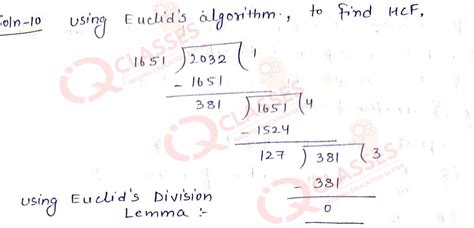 Soln-10 using Euclid's algorithm., to find HCF,
1651 ) 2032 ( 1
- 1651
381 ) 1651 ( 4
- 1524
127 ) 381 ( 3
- 381
0
using Euclid's Division
Lemma :-
IQ CLASSES
IQ CLASSES
IQ CLASSES